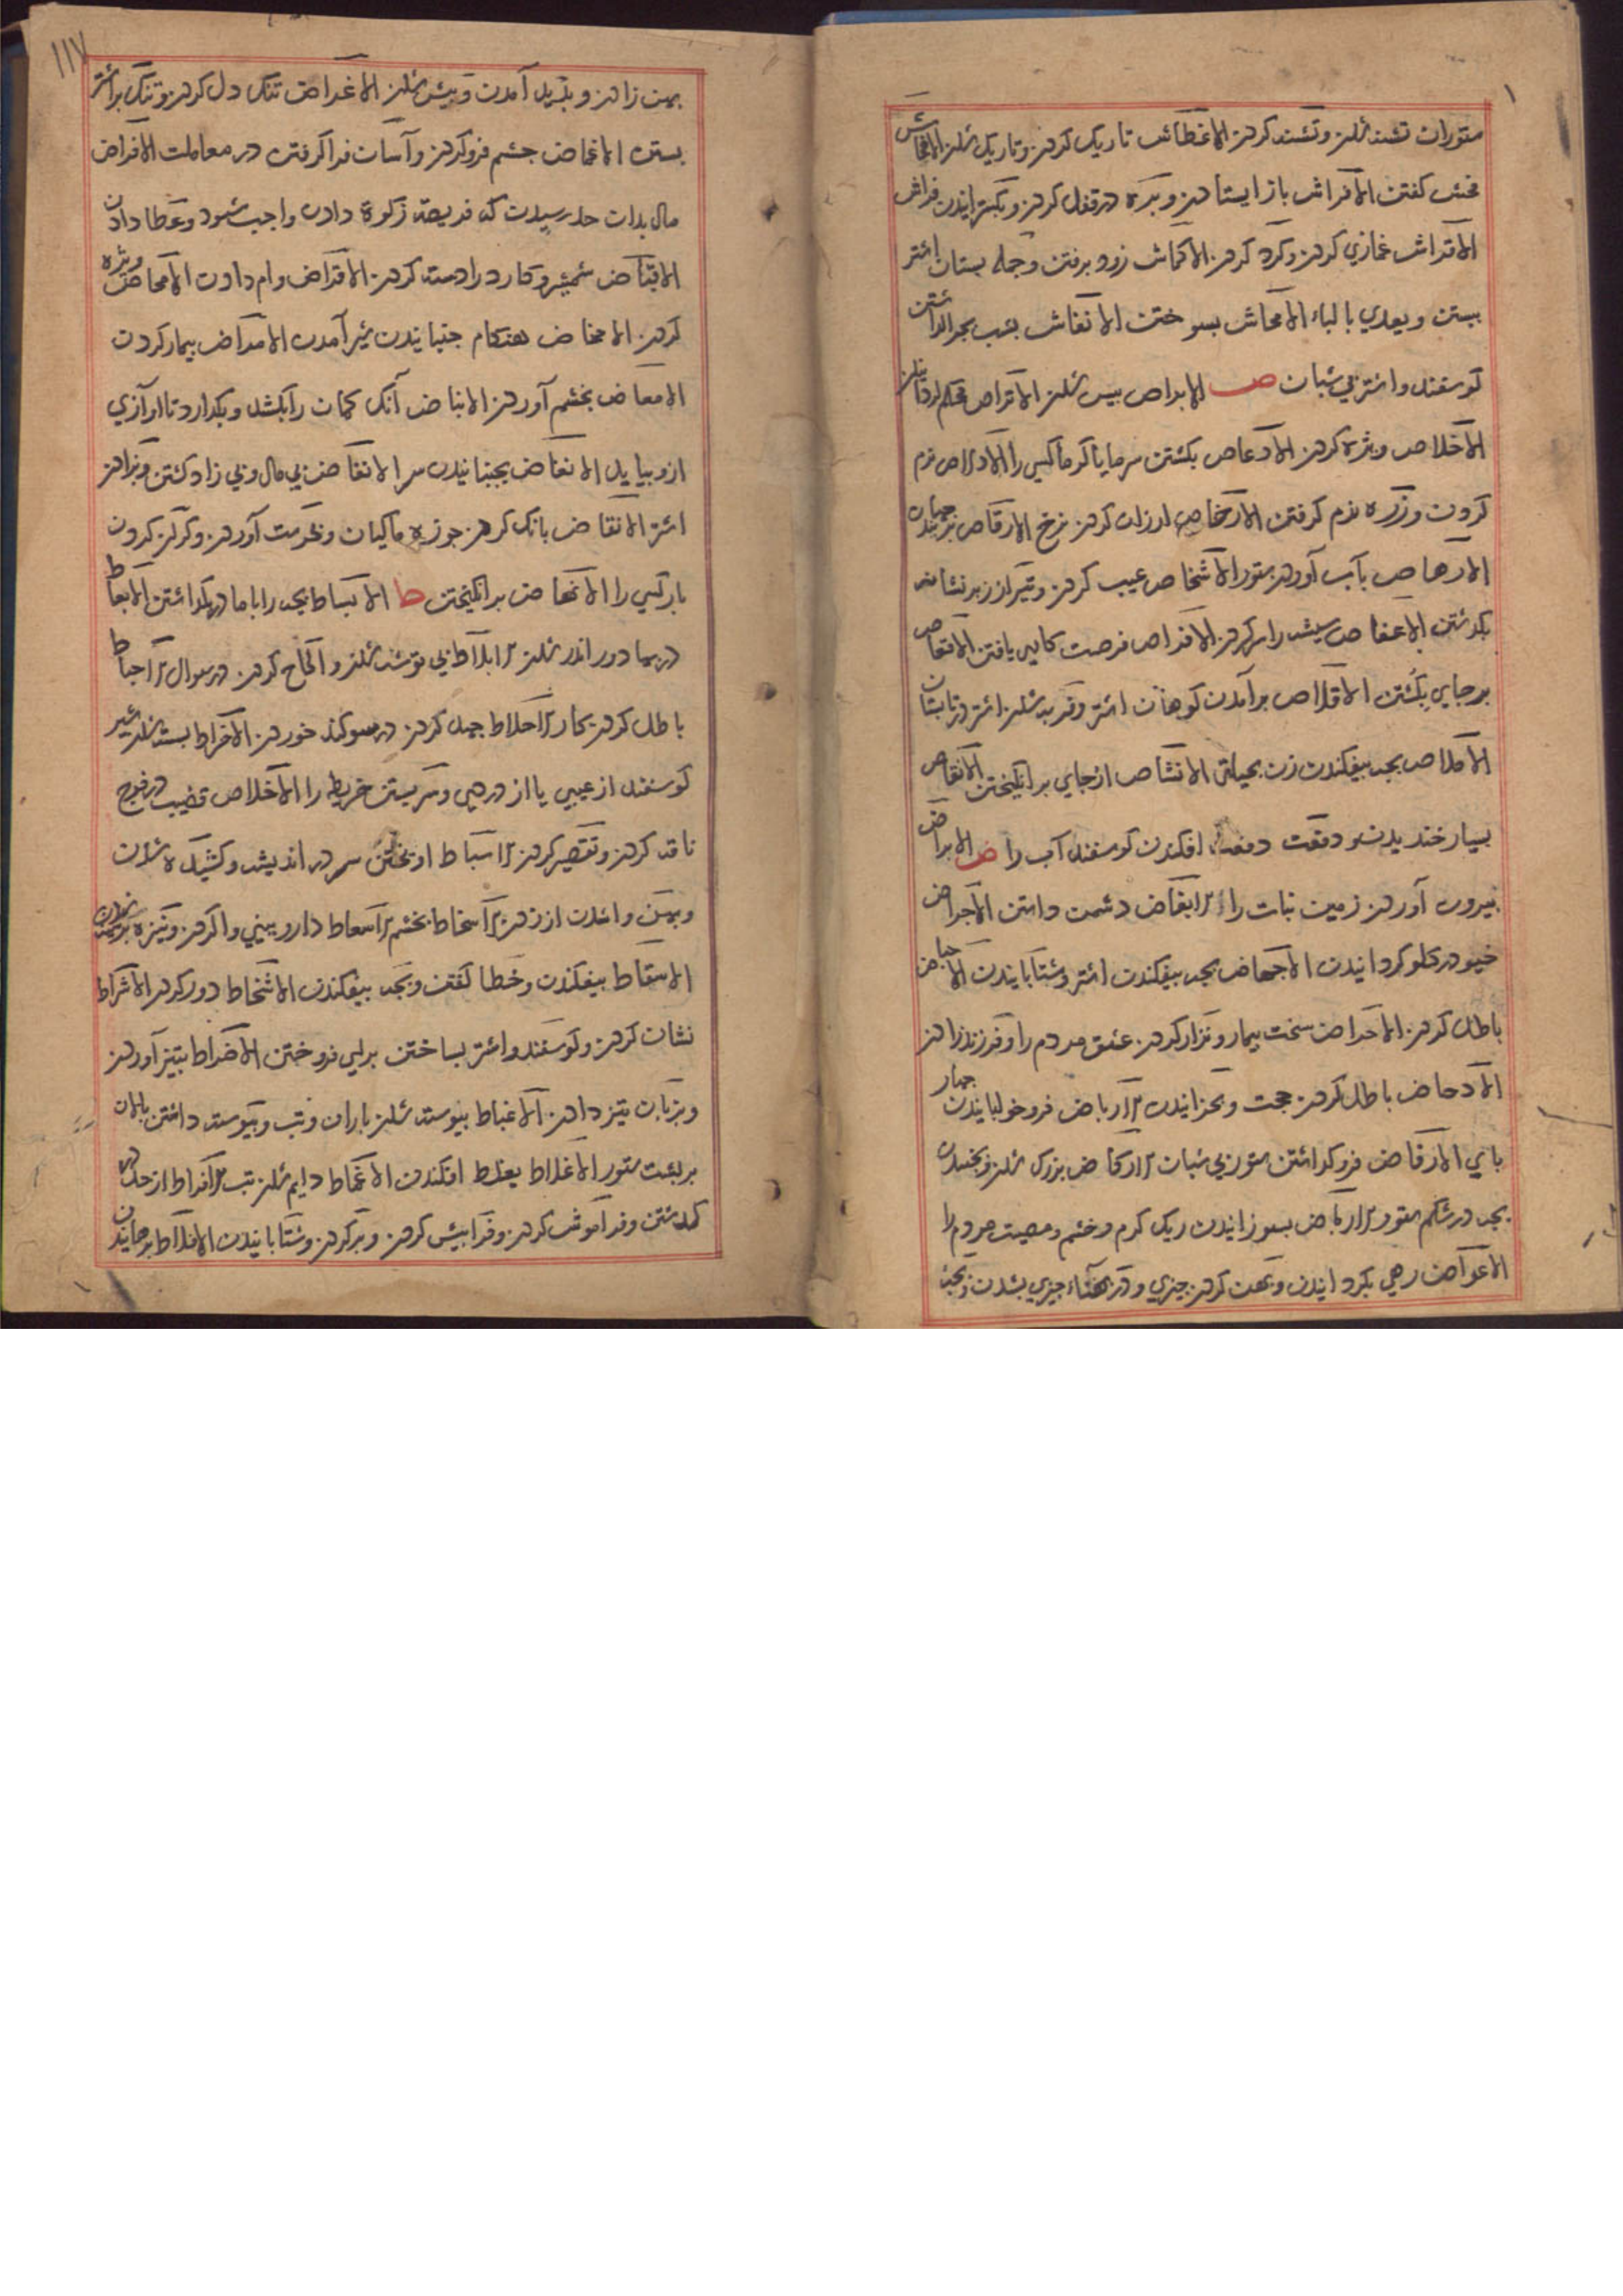 ستوران تشنه شدن و تشنه کردن الاغطاش تاریک کردن و تاریک شدن الافحاش
فحش کفتن الافراش باز ایستادن و بره در قفل کردن و بکسترانیدن فراش
الاقراش غمازي کردن و کرد کردن الاکماش زود برفتن و جمله بستان اشتر
ببستن و یعدي بالباء الامحاش بسوختن الانفاش بشب بچرا داشتن
کوسفند و اشتر بي شبان ص الابراص بیس شدن الاتراص محکم کردانیدن
الاخلاص ویژه کردن الادعاص بکشتن سرما یا کرما کسي را الادلاص نرم
کردن و زره نرم کرفتن الارخاص ارزان کردن نرخ الارقاص
الارهاص بآب آوردن ستور الاشخاص عیب کردن و تیر از زبر نشانه
بکذشتن الاعفاص شیشه را سر کردن الافراص فرصت کاري یافتن الاقعاص
بر جاي بکشتن الاقلاص بر آمدن کوهان اشتر و فربه شدن اشتر در تابستان
الاملاص بچه بیفکندن زن بحیلتي الانشاص از جاي بر انکیختن الانقاص
بسیار خندیدن و دفعت دفعت افکندن کوسفند آب را ض الابراض
بیرون آوردن زمین نبات را الابغاض دشمن داشتن الاجراض
خیو در کلو کردانیدن الاجهاض بچه بیفکندن اشتر و شتابانیدن الاحباض
باطل کردن الاحراض سخت بیمار و نزار کردن عشق مردم را و فرزند زادن
الادحاض باطل کردن حجت و بخزانیدن الارباض فرو خوابانیدن چهار
باي الارفاض فرو کذاشتن ستور بي شبان الارکاض بزرک شدن و بجنبیدن
بچه در شکم ستور الارماض بسوزانیدن ریک کرم و خشم و مصیبت مردم را
الاعراض روي بکردانیدن و پهن کردن چیزي و در پهناء چیزي بشدن و بچه
پهن زادن و بدید آمدن و بیش شدن الاغراض تنک دل کردن و تنک بر اشتر
بستن الاغماض چشم فرو کردن و آسان فرا کرفتن در معاملت الافراض
مال بدان حد رسیدن که فریضه زکوة دادن واجب شود و عطا دادن
الاقباض شمشیر و کارد را دسته کردن الاقراض وام دادن الامحاض ویژه
کردن الامخاض هنکام جنبانیدن شیر آمدن الامراض بیمار کردن
الامعاض بخشم آوردن الانباض آنک کمان را بکشد و بکذارد تا آوازي
ازو بیاید الانغاض بجنبانیدن سر الانفاض بي مال و بي زاد کشتن و بزادن
اشتر الانقاض بانک کردن جوزه ماکیان و بحرکت آوردن و کران کردن
بار کسي را الانهاض بر انکیختن ط الابساط بچه را با مادر بکذاشتن الابعاط
در بها دور اندر شدن الابلاط بي توشه شدن و الحاح کردن در سوال الاحباط
باطل کردن کار الاحلاط جهد کردن در سوکند خوردن الاخراط بسته شدن شیر
کوسفند از عیبي یا از دردي و سر بستن خریطه را الاخلاص قضیب در فرج
ناقه کردن و تقصیر کردن الاسباط اویختن سر در اندیشه و کشیده شدن
و بزمین واشدن از زدن الاسخاط بخشم الاسعاط دارو ببیني وا کردن و نیزه
الاسقاط بیفکندن و خطا کفتن و بچه بیفکندن الاشحاط دور کردن الاشراط
نشان کردن و کوسفند و اشتر بساختن براي فروختن الاضراط بتیز آوردن
و بزبان تیز دادن الاغباط بیوسته شدن باران و تب و بیوسته داشتن بالان
بر بشت ستور الاغلاط بغلط افکندن الاغماط دایم شدن تب الافراط از حد در
کذشتن و فراموش کردن و فرا بیش کردن و بر کردن و شتابانیدن الافلاط برهانیدن